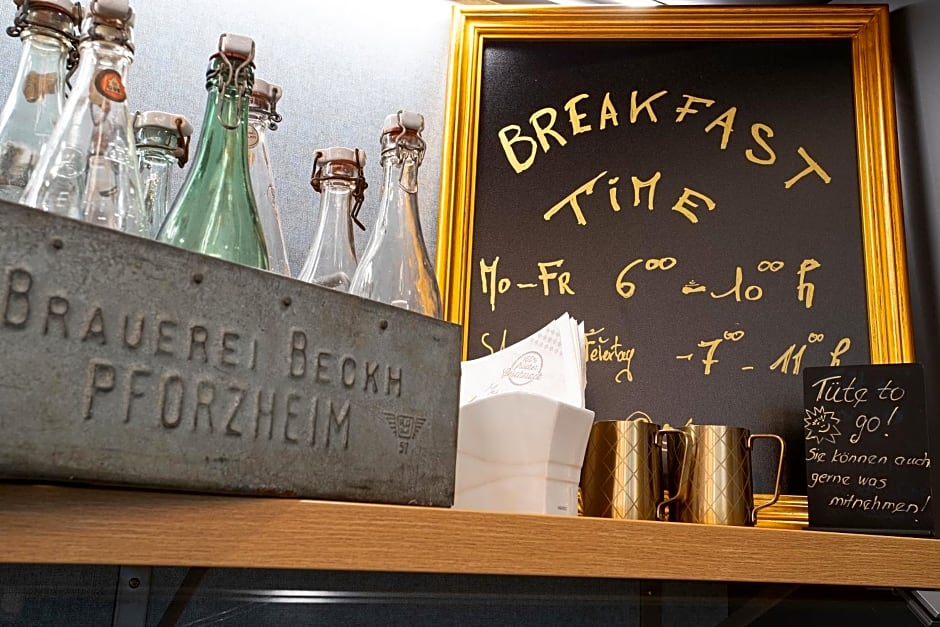 BRAUEREI BECKH
PFORZHEIM
57
BREAKFAST
TIME
MO-FR 6⁰⁰ - 10⁰⁰ h
Feiertag - 7⁰⁰ - 11⁰⁰ h
Tüte to
go!
Sie können auch
gerne was
mitnehmen!